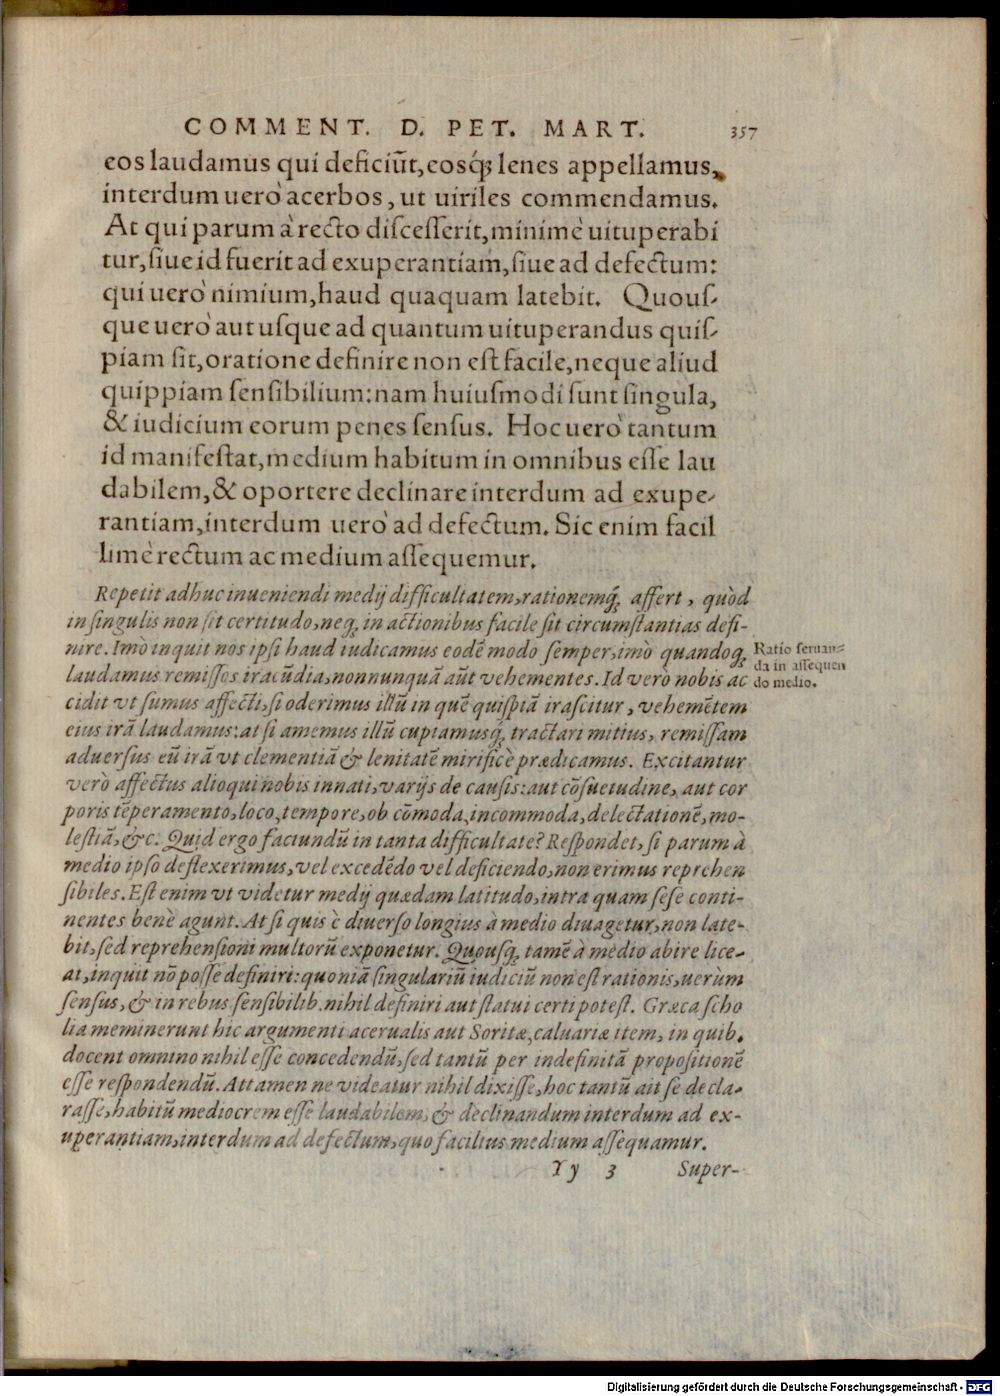 COMMENT. D. PET. MART. 357
eos laudamus qui deficiũt, eosq́ꝫ lenes appellamus,
interdum uerò acerbos, ut uiriles commendamus.
At qui parum à recto diſceſſerit, minimè uituperabi
tur, ſiue id fuerit ad exuperantiam, ſiue ad defectum:
qui uerò nimium, haud quaquam latebit. Quouſ-
que uerò aut uſque ad quantum uituperandus quiſ-
piam ſit, oratione definire non eſt facile, neque aliud
quippiam ſenſibilium: nam huiuſmodi ſunt ſingula,
& iudicium eorum penes ſenſus. Hoc uerò tantum
id manifeſtat, medium habitum in omnibus eſſe lau
dabilem, & oportere declinare interdum ad exupe-
rantiam, interdum uerò ad defectum. Sic enim facil
limè rectum ac medium aſſequemur.
Repetit adhuc inueniendi medij difficultatem, rationemq́ꝫ affert, quòd
in ſingulis non ſit certitudo, neqꝫ in actionibus facile ſit circumſtantias defi-
nire. Imò inquit nos ipſi haud iudicamus eodẽ modo ſemper, imò quandoqꝫ
laudamus remiſſos iracũdia, nonnunquã aũt vehementes. Id verò nobis ac
cidit vt ſumus affecti, ſi oderimus illũ in quẽ quiſpiã iraſcitur, vehemẽtem
eius irã laudamus: at ſi amemus illũ cupiamusq́ꝫ tractari mitius, remiſſam
aduerſus eũ irã vt clementiã & lenitatẽ mirificè prædicamus. Excitantur
verò affectus alioqui nobis innati, varijs de cauſis: aut cõſuetudine, aut cor
poris tẽperamento, loco, tempore, ob cõmoda, incommoda, delectationẽ, mo-
leſtiã, &c. Quid ergo faciundũ in tanta difficultate? Reſpondet, ſi parum à
medio ipſo deflexerimus, vel excedẽdo vel deficiendo, non erimus reprehen
ſibiles. Eſt enim vt videtur medij quædam latitudo, intra quam ſeſe conti-
nentes benè agunt. At ſi quis è diuerſo longius à medio diuagetur, non late-
bit, ſed reprehenſioni multorũ exponetur. Quouſqꝫ tamẽ à medio abire lice-
at, inquit nõ poſſe definiri: quoniã ſingulariũ iudiciũ non eſt rationis, verùm
ſenſus, & in rebus ſenſibilib. nihil definiri aut ſtatui certi poteſt. Græca ſcho
lia meminerunt hic argumenti acerualis aut Soritæ, caluariæ item, in quib.
docent omnino nihil eſſe concedendũ, ſed tantũ per indefinitã propoſitionẽ
eſſe reſpondendũ. Attamen ne videatur nihil dixiſſe, hoc tantũ ait ſe decla-
raſſe, habitũ mediocrem eſſe laudabilem, & declinandum interdum ad ex-
uperantiam, interdum ad defectum, quo facilius medium aſſequamur.
Yy 3 Super-
Ratio ſeruan-
da in aſſequen
do medio.
Digitalisierung gefördert durch die Deutsche Forschungsgemeinschaft - DFG